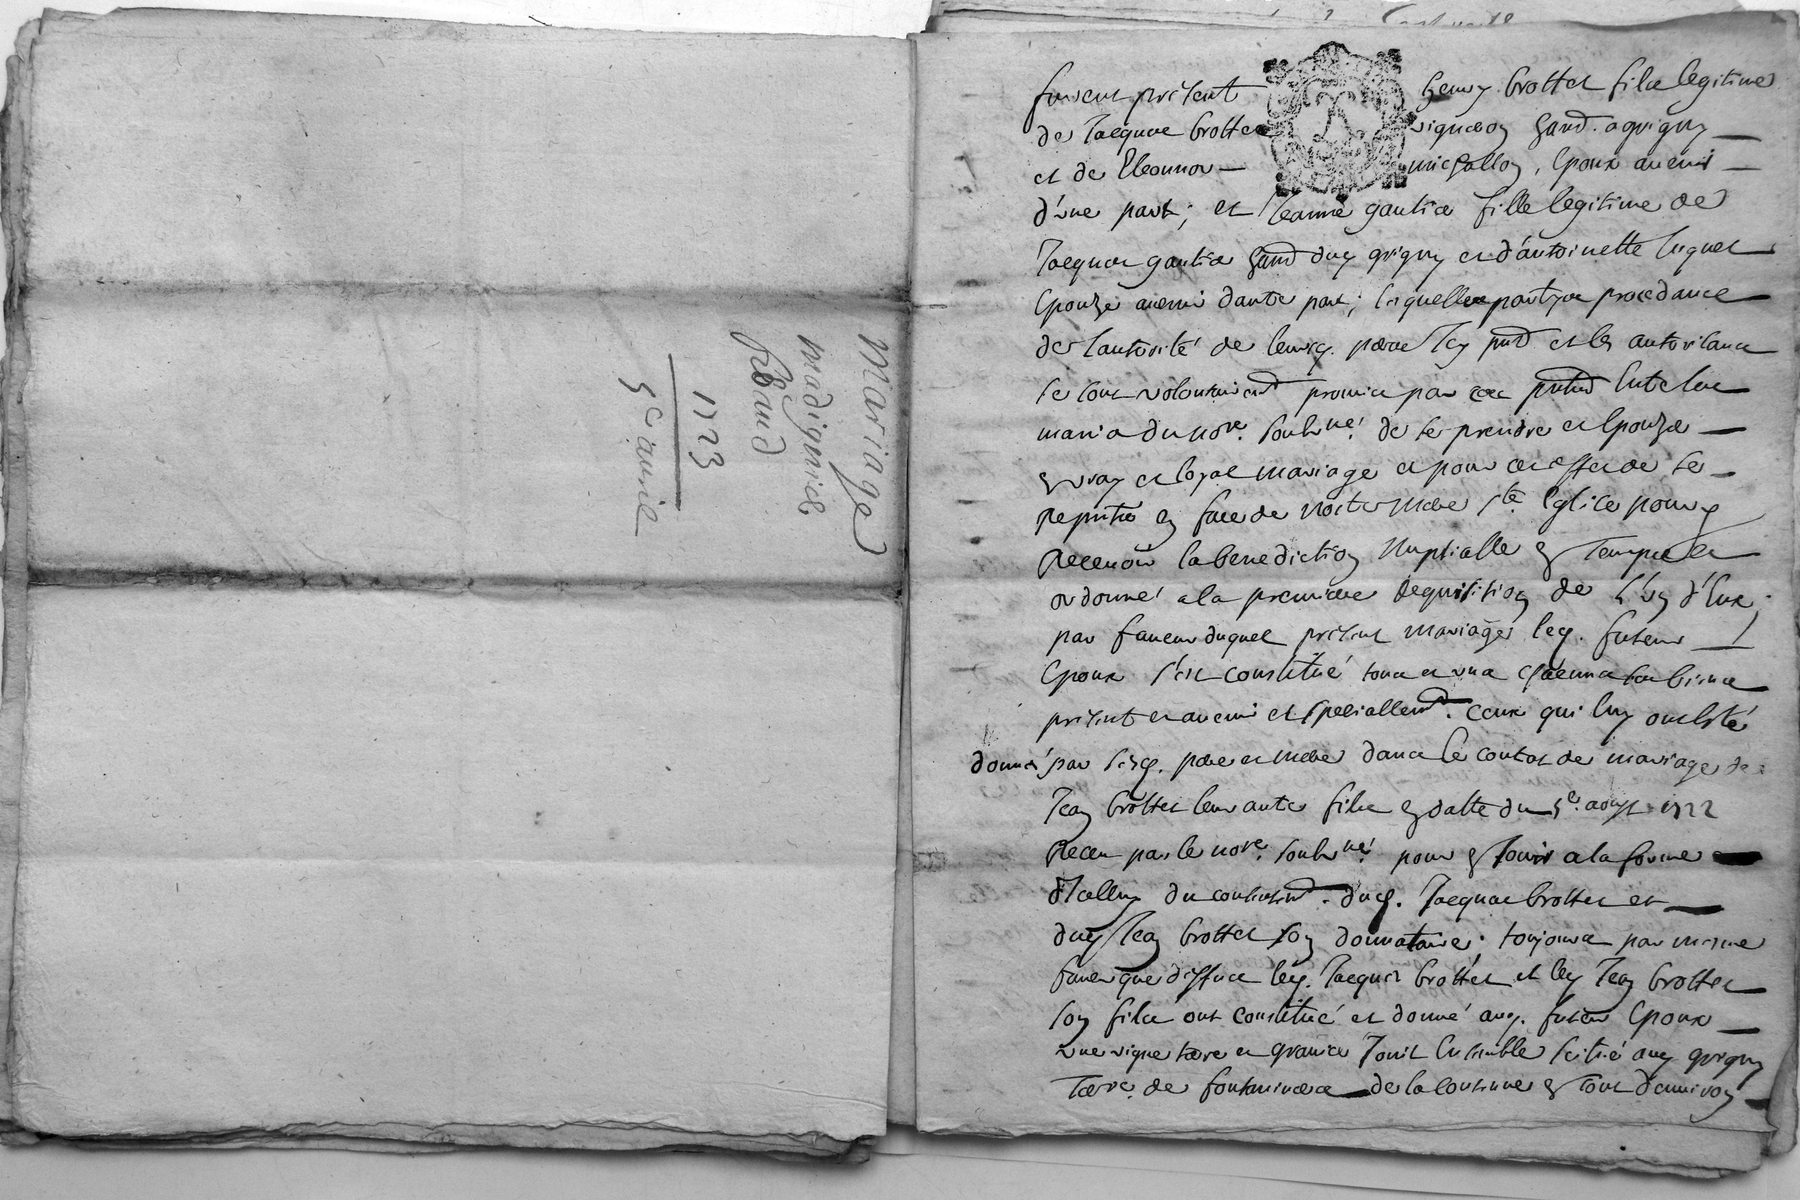 Mariage
madignier
Rebaud
1723
5e avril
furent présent henry brottet fils legitime
de Jacques brottet vigneron hand. a grigny
et de Eleonnor michallon, Epoux avenir
d'une part; et Jeanne gautier fille legitime de
Jacques gautier hand dud grigny et d'antoinette luquet
Epouze avenir dautre part; lesquelles partyes procedants
de l'autorité de leursd. peres
se sont volontairemt promis par ces
mariés du nore. soubsné. de se prendre et Epouzer
en vray et loyal mariage et pour cet effet de se
en face de nostre mere Ste Eglise pour y
Recevoir la benediction Nuptialle en Temps et
ordonné a la premiere Requisition de L'un d'Eux;
par faveur duquel present mariage led. futeur
Epoux s'est constitué tous et uns chacuns ses biens
present et avenir et speciallemt. ceux qui luy ont esté
donnés par sesd. pere et mere dans le contat de mariage de
Jean brottet leur autre fils en datte du 5e. aoust 1722
Receu par le nore. soubsné. pour en Jouir a la forme
d'Icelluy du consentemt. dud. Jacques brottet et
dud Jean brottet son donnataire; toujours par mesme
faveur que dessus led. Jacques brottet et led Jean brottet
son fils ont constitué et donné aud. futeur Epoux
une vigne terre et Joint Ensemble scitué aud grigny
Terre. de de la contenue en tout d'environ